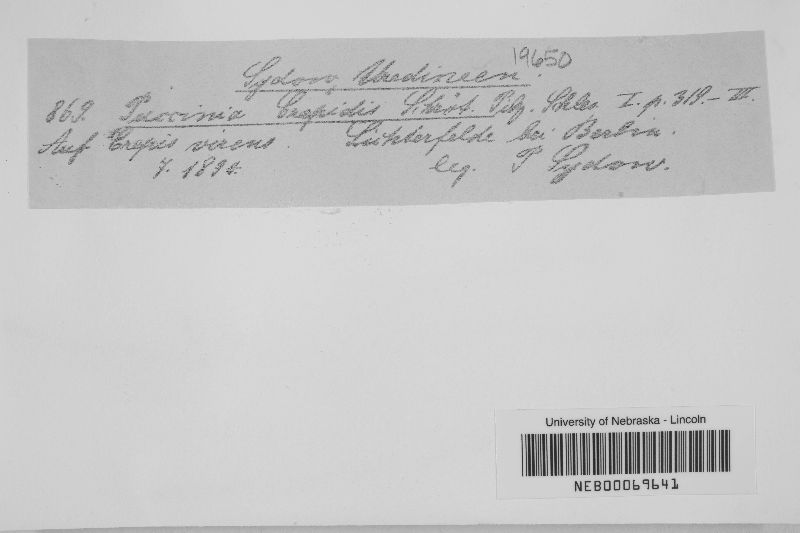 19650
Sydow, Uredineen.
869. Puccinia Crepidis Schröt. Pilz. Schles I. p. 319. – III.
Auf Crepis virens. Lichterfelde bei Berlin.
7. 1894. leg. P Sydow.
University of Nebraska - Lincoln
NEB00069641